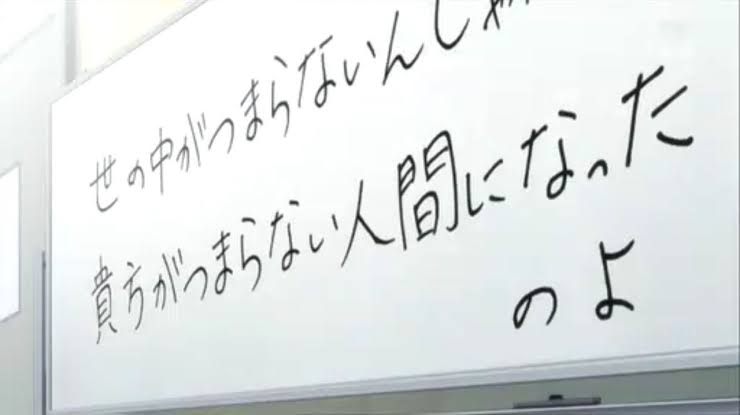 世の中がつまらないんじゃ
貴方がつまらない人間になった
のよ